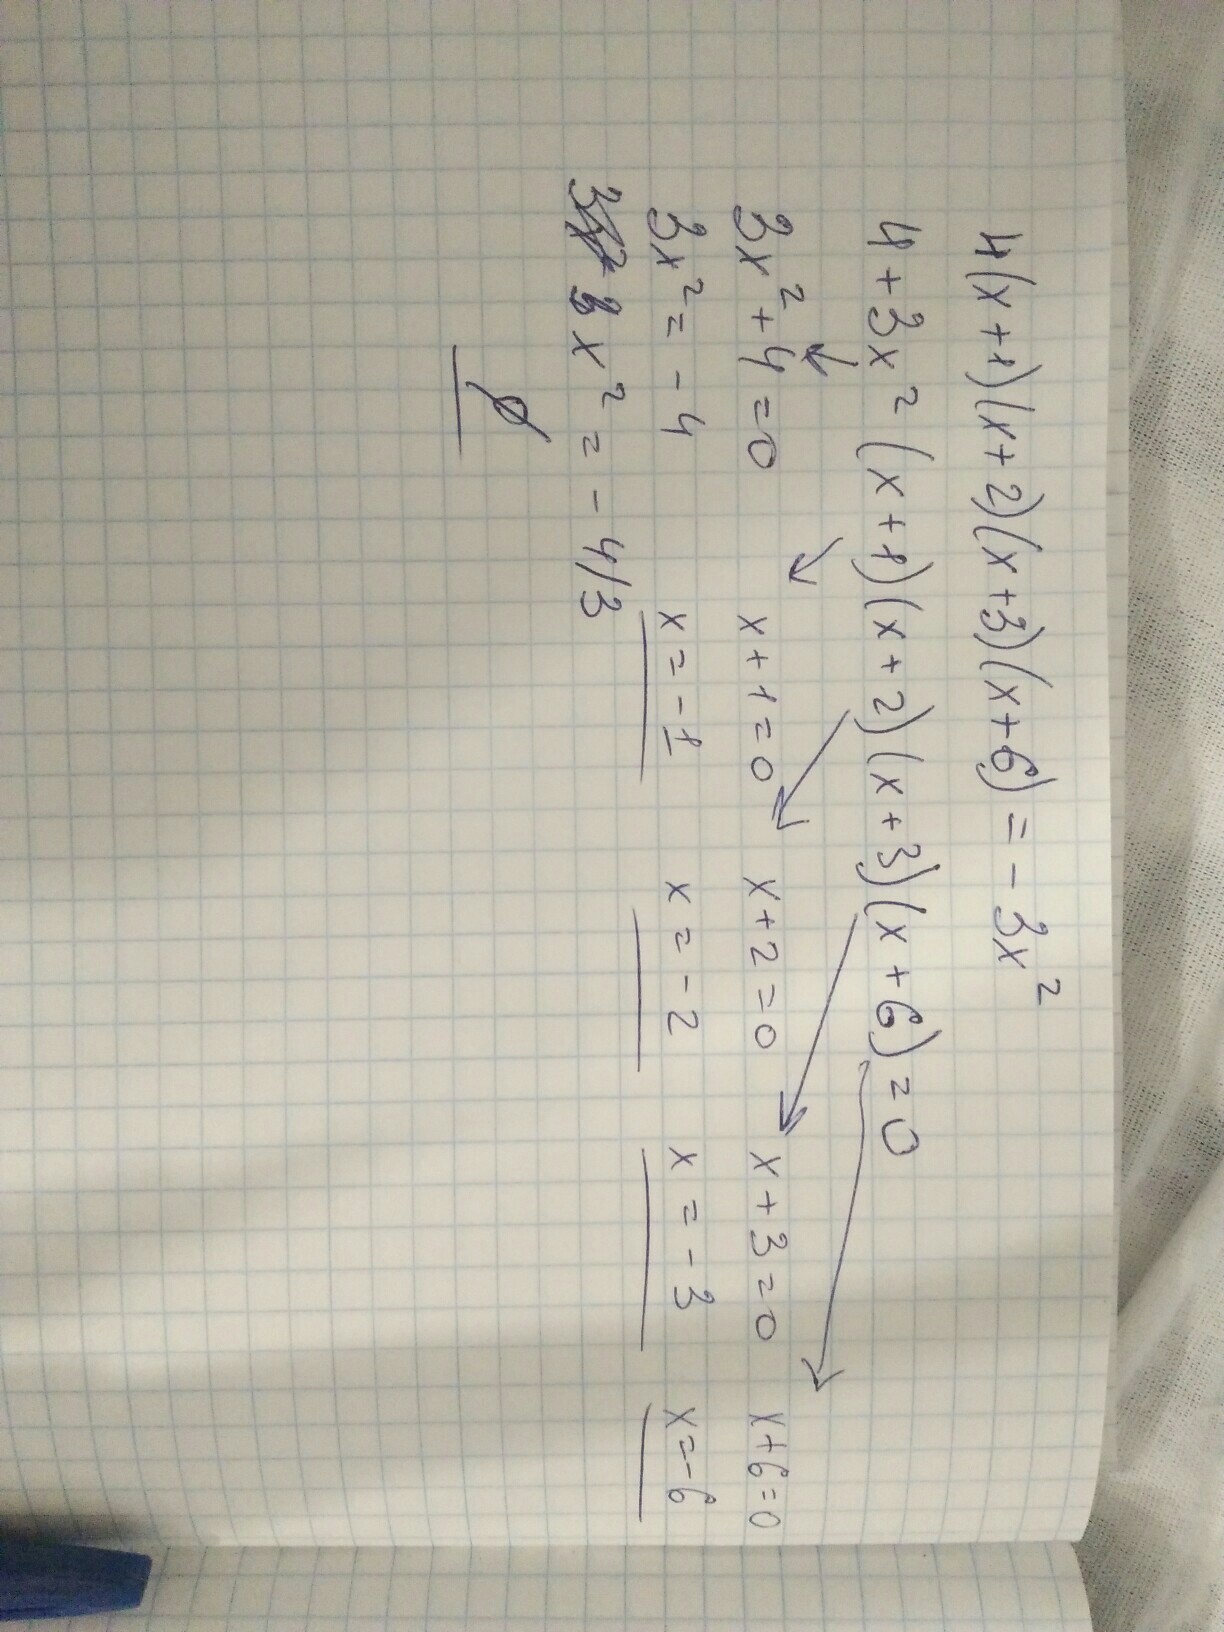 4(x+1)(x+2)(x+3)(x+6) = -3x²
4+3x² (x+1)(x+2)(x+3)(x+6) = 0
3x²+4=0 x+1=0 x+2=0 x+3=0 x+6=0
3x² = -4 x = -1 x = -2 x = -3 x = -6
x² = -4/3
∅